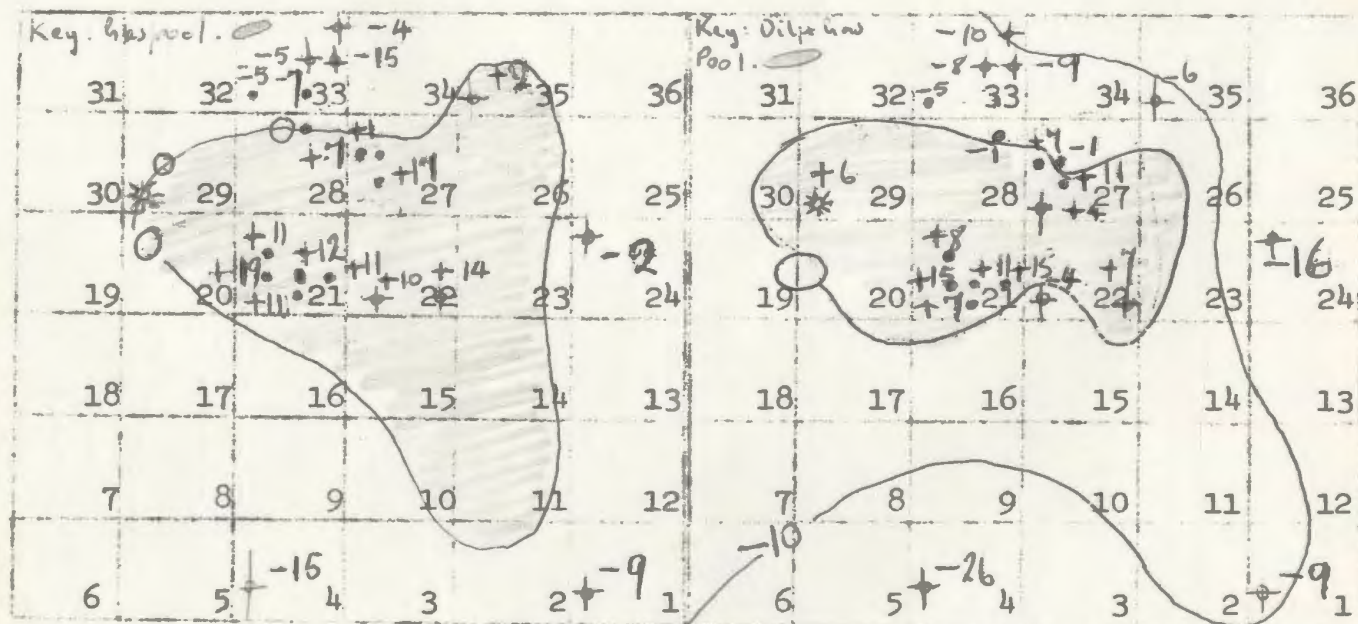 Key.
-4
-5 -15
-5 -7
+2
31 32 33 34 35 36
+1
+7
+17
30 29 28 27 26 25
+11
+12
+19 +11 +10 +14
-2
19 20 21 22 23 24
+11
18 17 16 15 14 13
7 8 9 10 11 12
-15
-9
6 5 4 3 2 1
Key:
Pool.
-10
-8 -9
-6
-5
31 32 33 34 35 36
-1
+7 -1
+6
+11
30 29 28 27 26 25
+4
+8
+15 +11 +15 -4 +7
-16
19 20 21 22 23 24
+7
18 17 16 15 14 13
7 8 9 10 11 12
-10
-26
-9
6 5 4 3 2 1